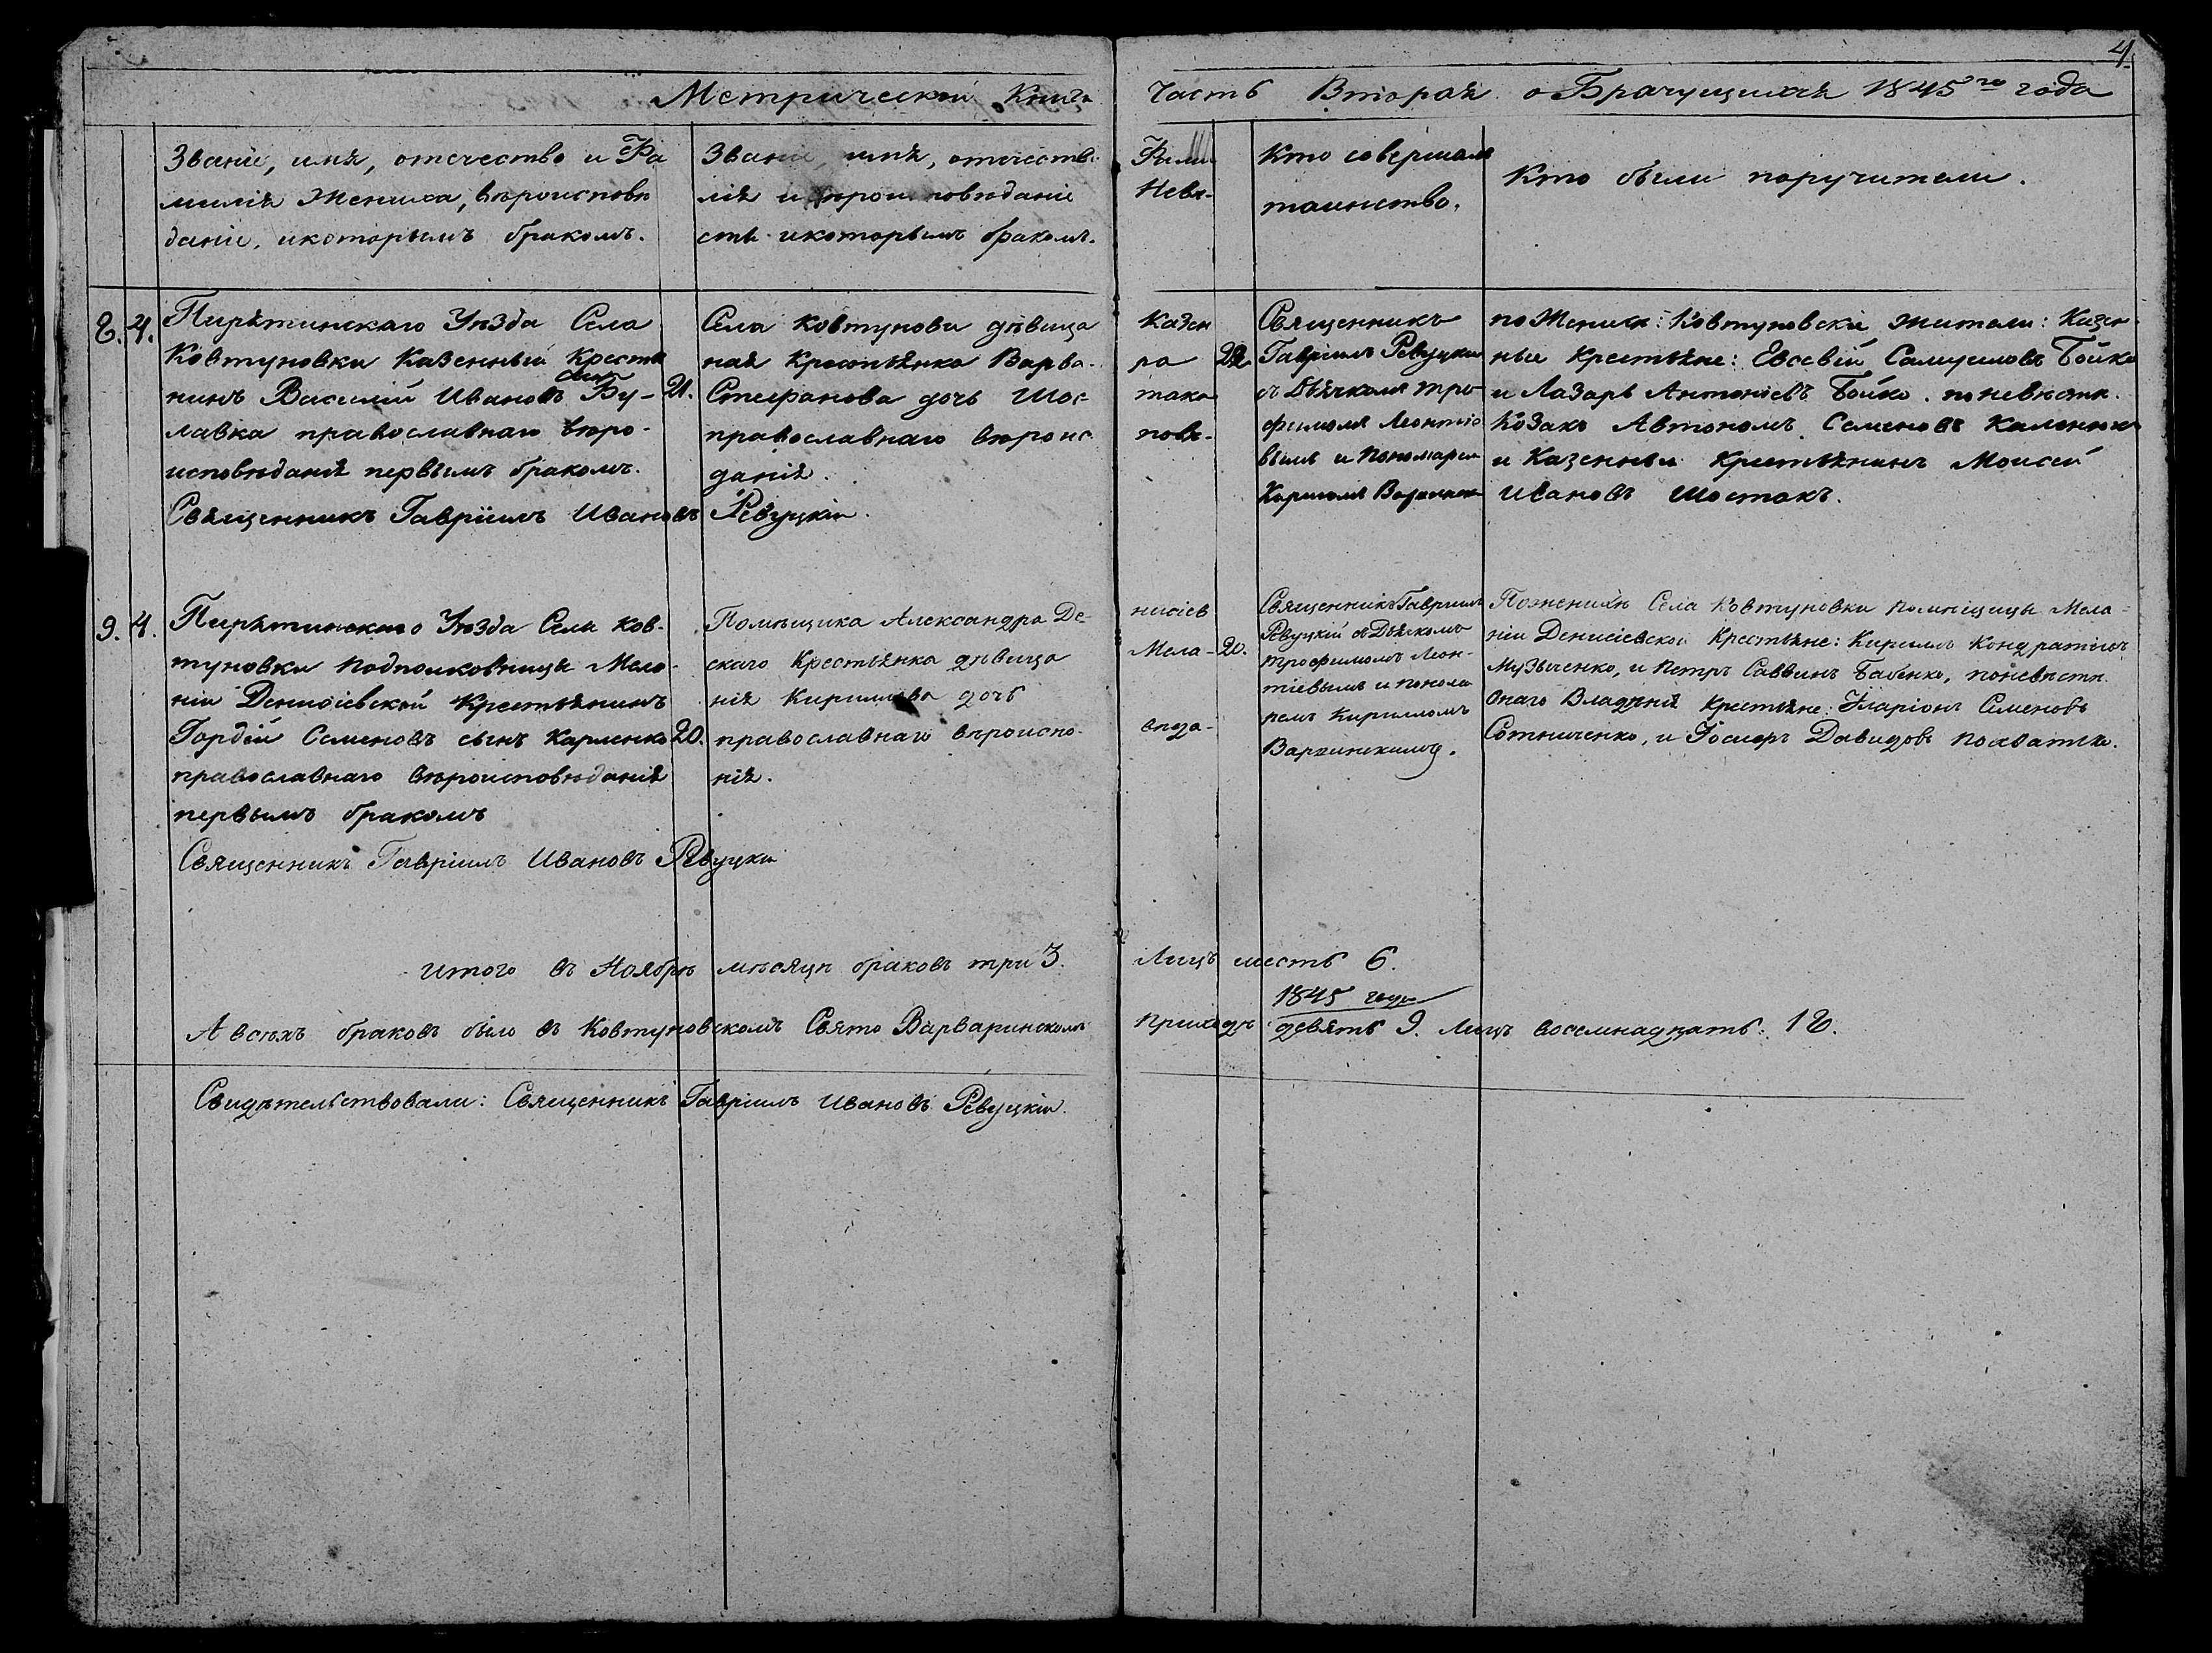 4.
Метрической Книги Часть Вторая о Брачущихся 1845го года
Званіе, имя, отечество и Фа
милія Жениха, вѣроисповѣ
даніе, икоторымъ бракомъ.
Званіе, имя, отечество Фами
лія и вѣроисповѣданіе Невѣ-
сты икоторымъ бракомъ.
Кто совершалъ
таинство.
Кто были поручители.
8. 4.
Пирятинскаго Уѣзда Села
Ковтуновки Казенный Крестья
нинъ Василій Ивановъ сынъ Бу- 21.
лавка православнаго вѣро-
исповѣданія первымъ бракомъ.
Священникъ Гавріилъ Ивановъ Ревуцкій.
Села Ковтуновки дѣвица Казен
ная Крестьянка Варва- ра 22
Стефанова дочь Шос- така
православнаго вѣроис повѣ-
данія.
Священникъ
Гавріилъ Ревуцкій
съ Дьячкомъ Тро
фимомъ Леонтіе
вымъ и Пономарем
Кирилом
по Женихѣ: Ковтуновскіе жители: Казен-
ные Крестьяне: Евсевій Самуиловъ Бойко
и Лазарь Антоніевъ Бойко. по невѣстѣ.
Козакъ Автономъ Семеновъ
и Казенный Крестьянинъ Моисей
Ивановъ Шостакъ.
9. 4.
Пирятинскаго Уѣзда Села Ков-
туновки Подполковницы Мела-
ніи Денисіевской Крестьянинъ
Гордій Семеновъ сынъ Карпенко 20.
православнаго вѣроисповѣданія
первымъ бракомъ
Священникъ Гавріилъ Ивановъ Ревуцкій
Помѣщика Александра Де- нисіев
скаго Крестьянка дѣвица Мела- 20.
нія Кирилова дочь
православнаго вѣроиспо- вѣда-
нія.
Священникъ Гавріилъ
Ревуцкій съ Дьякомъ
Трофимомъ Леон-
тіевымъ и понома
ремъ Кирилломъ
Варзинскимъ.
Поженихѣ Села Ковтуновки помѣщицы Мела-
ніи Денисіевской Крестьяне: Кириллъ Кондратіевъ
Музыченко, и Петръ Саввинъ Бабенко, поневѣстѣ
онаго Владѣнія Крестьяне: Іларіонъ Семеновъ
Сотниченко, и Іосифъ Давидовъ
итого въ Ноябрѣ мѣсяцѣ браковъ три 3. Лицъ шесть 6.
1845 году
А всѣхъ браковъ было въ Ковтуновскомъ Свято Варваринскомъ приходѣ девять 9. Лицъ восемнадцать. 18.
Свидѣтельствовали: Священникъ Гавріилъ Ивановъ Ревуцкій.